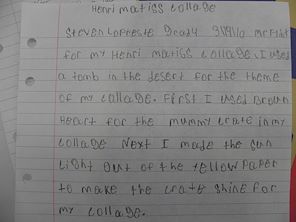 Henri matiss collage
Steven Lopreste Grady
for my Henri matiss collage. I used
a tomb in the desert for the theme
of my collage. First I used Brown
Heart for the mummy crate in my
collage Next I made the sun
Light out of the yellow paper
to make the crate shine for
my collage.